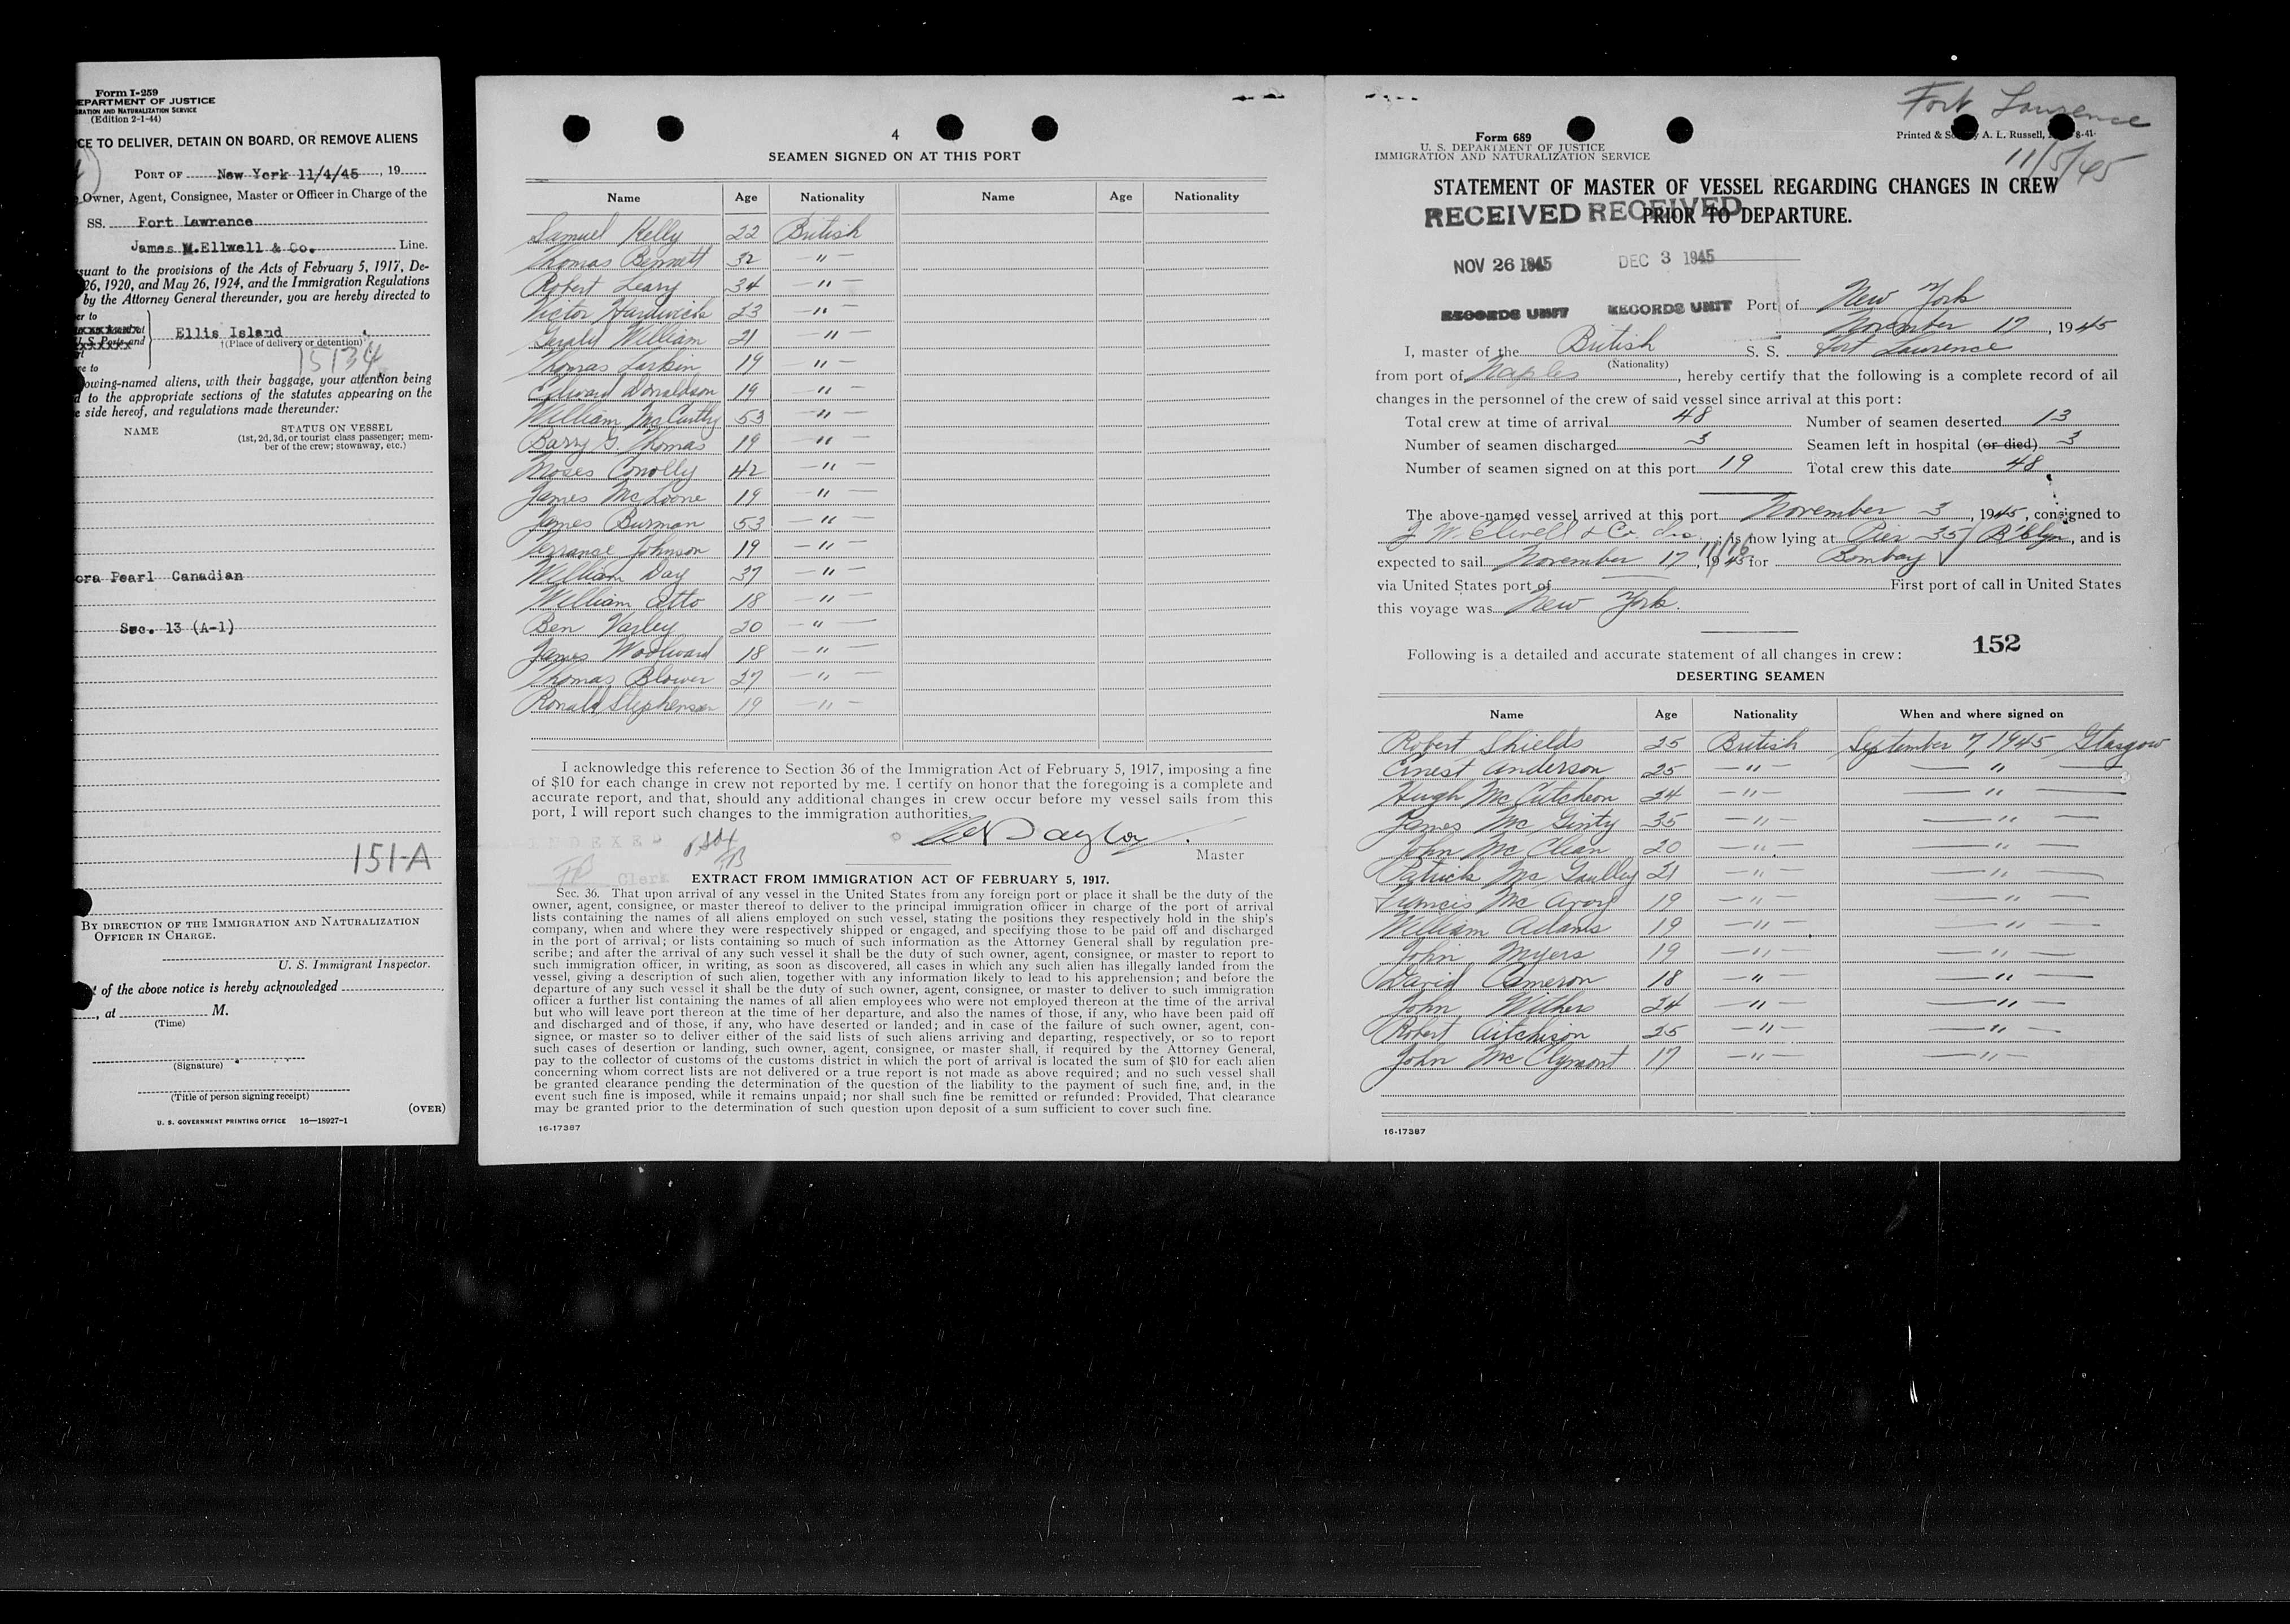 Form I-259
EPARTMENT OF JUSTICE
RATION AND NATURALIZATION SERVICE
(Edition 2-1-44)
CE TO DELIVER, DETAIN ON BOARD, OR REMOVE ALIENS
PORT OF New York 11/4/45, 19
Owner, Agent, Consignee, Master or Officer in Charge of the
SS. Fort Lawrence
James M.Ellwell & Co. Line.
suant to the provisions of the Acts of February 5, 1917, De-
26, 1920, and May 26, 1924, and the Immigration Regulations
by the Attorney General thereunder, you are hereby directed to
er to
U.S. Ports and
Ellis Island
†(Place of delivery or detention)
15134
re to
owing-named aliens, with their baggage, your attention being
d to the appropriate sections of the statutes appearing on the
e side hereof, and regulations made thereunder:
NAME STATUS ON VESSEL
(1st, 2d, 3d, or tourist class passenger; mem-
ber of the crew; stowaway, etc.)
ora Pearl Canadian
Sec. 13 (A-1)
151-A
BY DIRECTION OF THE IMMIGRATION AND NATURALIZATION
OFFICER IN CHARGE.
U. S. Immigrant Inspector.
t of the above notice is hereby acknowledged
, at M.
(Time)
(Signature)
(Title of person signing receipt)
(OVER)
U. S. GOVERNMENT PRINTING OFFICE 16—18927-1
4
SEAMEN SIGNED ON AT THIS PORT
Name Age Nationality Name Age Nationality
Samuel Kelly 22 British
Thomas Bennett 32 — " —
Robert Leary 34 — " —
Victor Hardwick 23 — " —
Gerald William 21 — " —
Thomas Larkin 19 — " —
Edward Donaldson 19 — " —
William McCarthy 53 — " —
Barry G. Thomas 19 — " —
Moses Conolly 42 — " —
James McLoone 19 — " —
James Burman 53 — " —
Terrance Johnson 19 — " —
William Day 37 — " —
William Otto 18 — " —
Ben Varley 20 — " —
James Woolward 18 — " —
Thomas Blower 27 — " —
Ronald Stephenson 19 — " —
I acknowledge this reference to Section 36 of the Immigration Act of February 5, 1917, imposing a fine
of $10 for each change in crew not reported by me. I certify on honor that the foregoing is a complete and
accurate report, and that, should any additional changes in crew occur before my vessel sails from this
port, I will report such changes to the immigration authorities.
INDEXED
Taylor
Master
FB Clerk
EXTRACT FROM IMMIGRATION ACT OF FEBRUARY 5, 1917.
Sec. 36. That upon arrival of any vessel in the United States from any foreign port or place it shall be the duty of the
owner, agent, consignee, or master thereof to deliver to the principal immigration officer in charge of the port of arrival
lists containing the names of all aliens employed on such vessel, stating the positions they respectively hold in the ship's
company, when and where they were respectively shipped or engaged, and specifying those to be paid off and discharged
in the port of arrival; or lists containing so much of such information as the Attorney General shall by regulation pre-
scribe; and after the arrival of any such vessel it shall be the duty of such owner, agent, consignee, or master to report to
such immigration officer, in writing, as soon as discovered, all cases in which any such alien has illegally landed from the
vessel, giving a description of such alien, together with any information likely to lead to his apprehension; and before the
departure of any such vessel it shall be the duty of such owner, agent, consignee, or master to deliver to such immigration
officer a further list containing the names of all alien employees who were not employed thereon at the time of the arrival
but who will leave port thereon at the time of her departure, and also the names of those, if any, who have been paid off
and discharged and of those, if any, who have deserted or landed; and in case of the failure of such owner, agent, con-
signee, or master so to deliver either of the said lists of such aliens arriving and departing, respectively, or so to report
such cases of desertion or landing, such owner, agent, consignee, or master shall, if required by the Attorney General,
pay to the collector of customs of the customs district in which the port of arrival is located the sum of $10 for each alien
concerning whom correct lists are not delivered or a true report is not made as above required; and no such vessel shall
be granted clearance pending the determination of the question of the liability to the payment of such fine, and, in the
event such fine is imposed, while it remains unpaid; nor shall such fine be remitted or refunded: Provided, That clearance
may be granted prior to the determination of such question upon deposit of a sum sufficient to cover such fine.
16-17387
Fort Lawrence
11/5/45
Form 689
U. S. DEPARTMENT OF JUSTICE
IMMIGRATION AND NATURALIZATION SERVICE
Printed & So y A. L. Russell, 8-41
STATEMENT OF MASTER OF VESSEL REGARDING CHANGES IN CREW
PRIOR TO DEPARTURE.
RECEIVED RECEIVED
NOV 26 1945 DEC 3 1945
RECORDS UNIT RECORDS UNIT
Port of New York
November 17, 1945
I, master of the British S. S. Fort Lawrence
(Nationality)
from port of Naples, hereby certify that the following is a complete record of all
changes in the personnel of the crew of said vessel since arrival at this port:
Total crew at time of arrival 48 Number of seamen deserted 13
Number of seamen discharged 3 Seamen left in hospital (or died) 3
Number of seamen signed on at this port 19 Total crew this date 48
The above-named vessel arrived at this port November 3, 1945, consigned to
J W. Elwell & Co. Inc.; is now lying at Pier 35 B'klyn, and is
11/16
expected to sail November 17, 1945 for Bombay
via United States port of First port of call in United States
this voyage was New York.
152
Following is a detailed and accurate statement of all changes in crew:
DESERTING SEAMEN
Name Age Nationality When and where signed on
Robert Shields 25 British September 7, 1945 Glasgow
Ernest Anderson 25 — " — — " —
Hugh McCutcheon 24 — " — — " —
James McGinty 35 — " — — " —
John McClean 20 — " — — " —
Patrick McGaulley 21 — " — — " —
Francis McAvoy 19 — " — — " —
William Adams 19 — " — — " —
John Myers 19 — " — — " —
David Cameron 18 — " — — " —
John Withers 24 — " — — " —
Robert Aitchison 25 — " — — " —
John McClymont 17 — " — — " —
16-17387